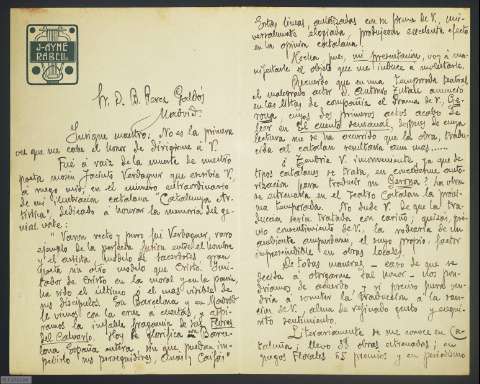 J. AYNÉ
RABELL
Sr. D. B. Perez Galdós
Madrid.
Insigne maestro: No es la primera
vez que me cabe el honor de dirigirme á V.
Fué á raiz de la muerte de nuestro
poeta mosen Jacinto Verdaguer que escribia V,
á ruego mio, en el número extraordinario
de mi ilustración catalana "Catalunya Ar-
tística", dedicado á honrar la memoria del ge-
nial vate:
"Varon recto y puro fué Verdaguer, raro
ejemplo de la perfecta fusion entre el hombre
y el artista, modelo de sacerdotes, gran
poeta sin otro modelo que Cristo. Imi-
tador de Cristo en la moral y en la poesia
ha sido el último y el mas visible de
sus discípulos. En Barcelona y en Madrid
le vimos con la cruz á cuestas, y aspi-
ramos la inefable fragancia de sus Flores
del Calvario. Hoy le glorifica
España entera, sin que puedan im-
pedirlo sus perseguidores, Anás y Caifás"
Estas líneas, autorizadas con la firma de V, uni-
versalmente elogiada, produjeron excelente efecto
en la opinion catalana.
Hecha, pues, mi presentación, voy á ma-
nifestarle el objeto que me induce á molestarle.
Recuerdo que en una temporada teatral
el malogrado actor D. Antonio Tutau anunció
en las listas de compañia el drama de V, Ge-
rona, cuyos dos primeros actos acabo de
leer en El cuento semanal, despues de cuya
lectura me ha ocurrido que la obra, tradu-
cida al catalan resultaria aun mas......
¿Tendria V. inconveniente, ya que de
tipos catalanes se trata, en concederme auto-
rización para traducir su Gerona? La obra
se estrenaria en el Teatro Catalan la próxi-
ma temporada. No dude V. de que la tra-
duccion seria tratada con cariño; quizás, pré-
vio consentimiento de V, la rodearia de un
ambiente ampurdanes, el suyo propio, factor
imprescindible en obras locales.
De todas maneras - caso de que se
decida á otorgarme tal honor - nos pon-
driamos de acuerdo, y si preciso fuese ven-
dria á someter la traduccion á la san-
cion de V, alma de refinado gusto y exqui-
sito sentimiento.
Literariamente se me conoce en Ca-
taluña; llevo 38 obras estrenadas; en
Juegos Florales 65 premios y en periodismo